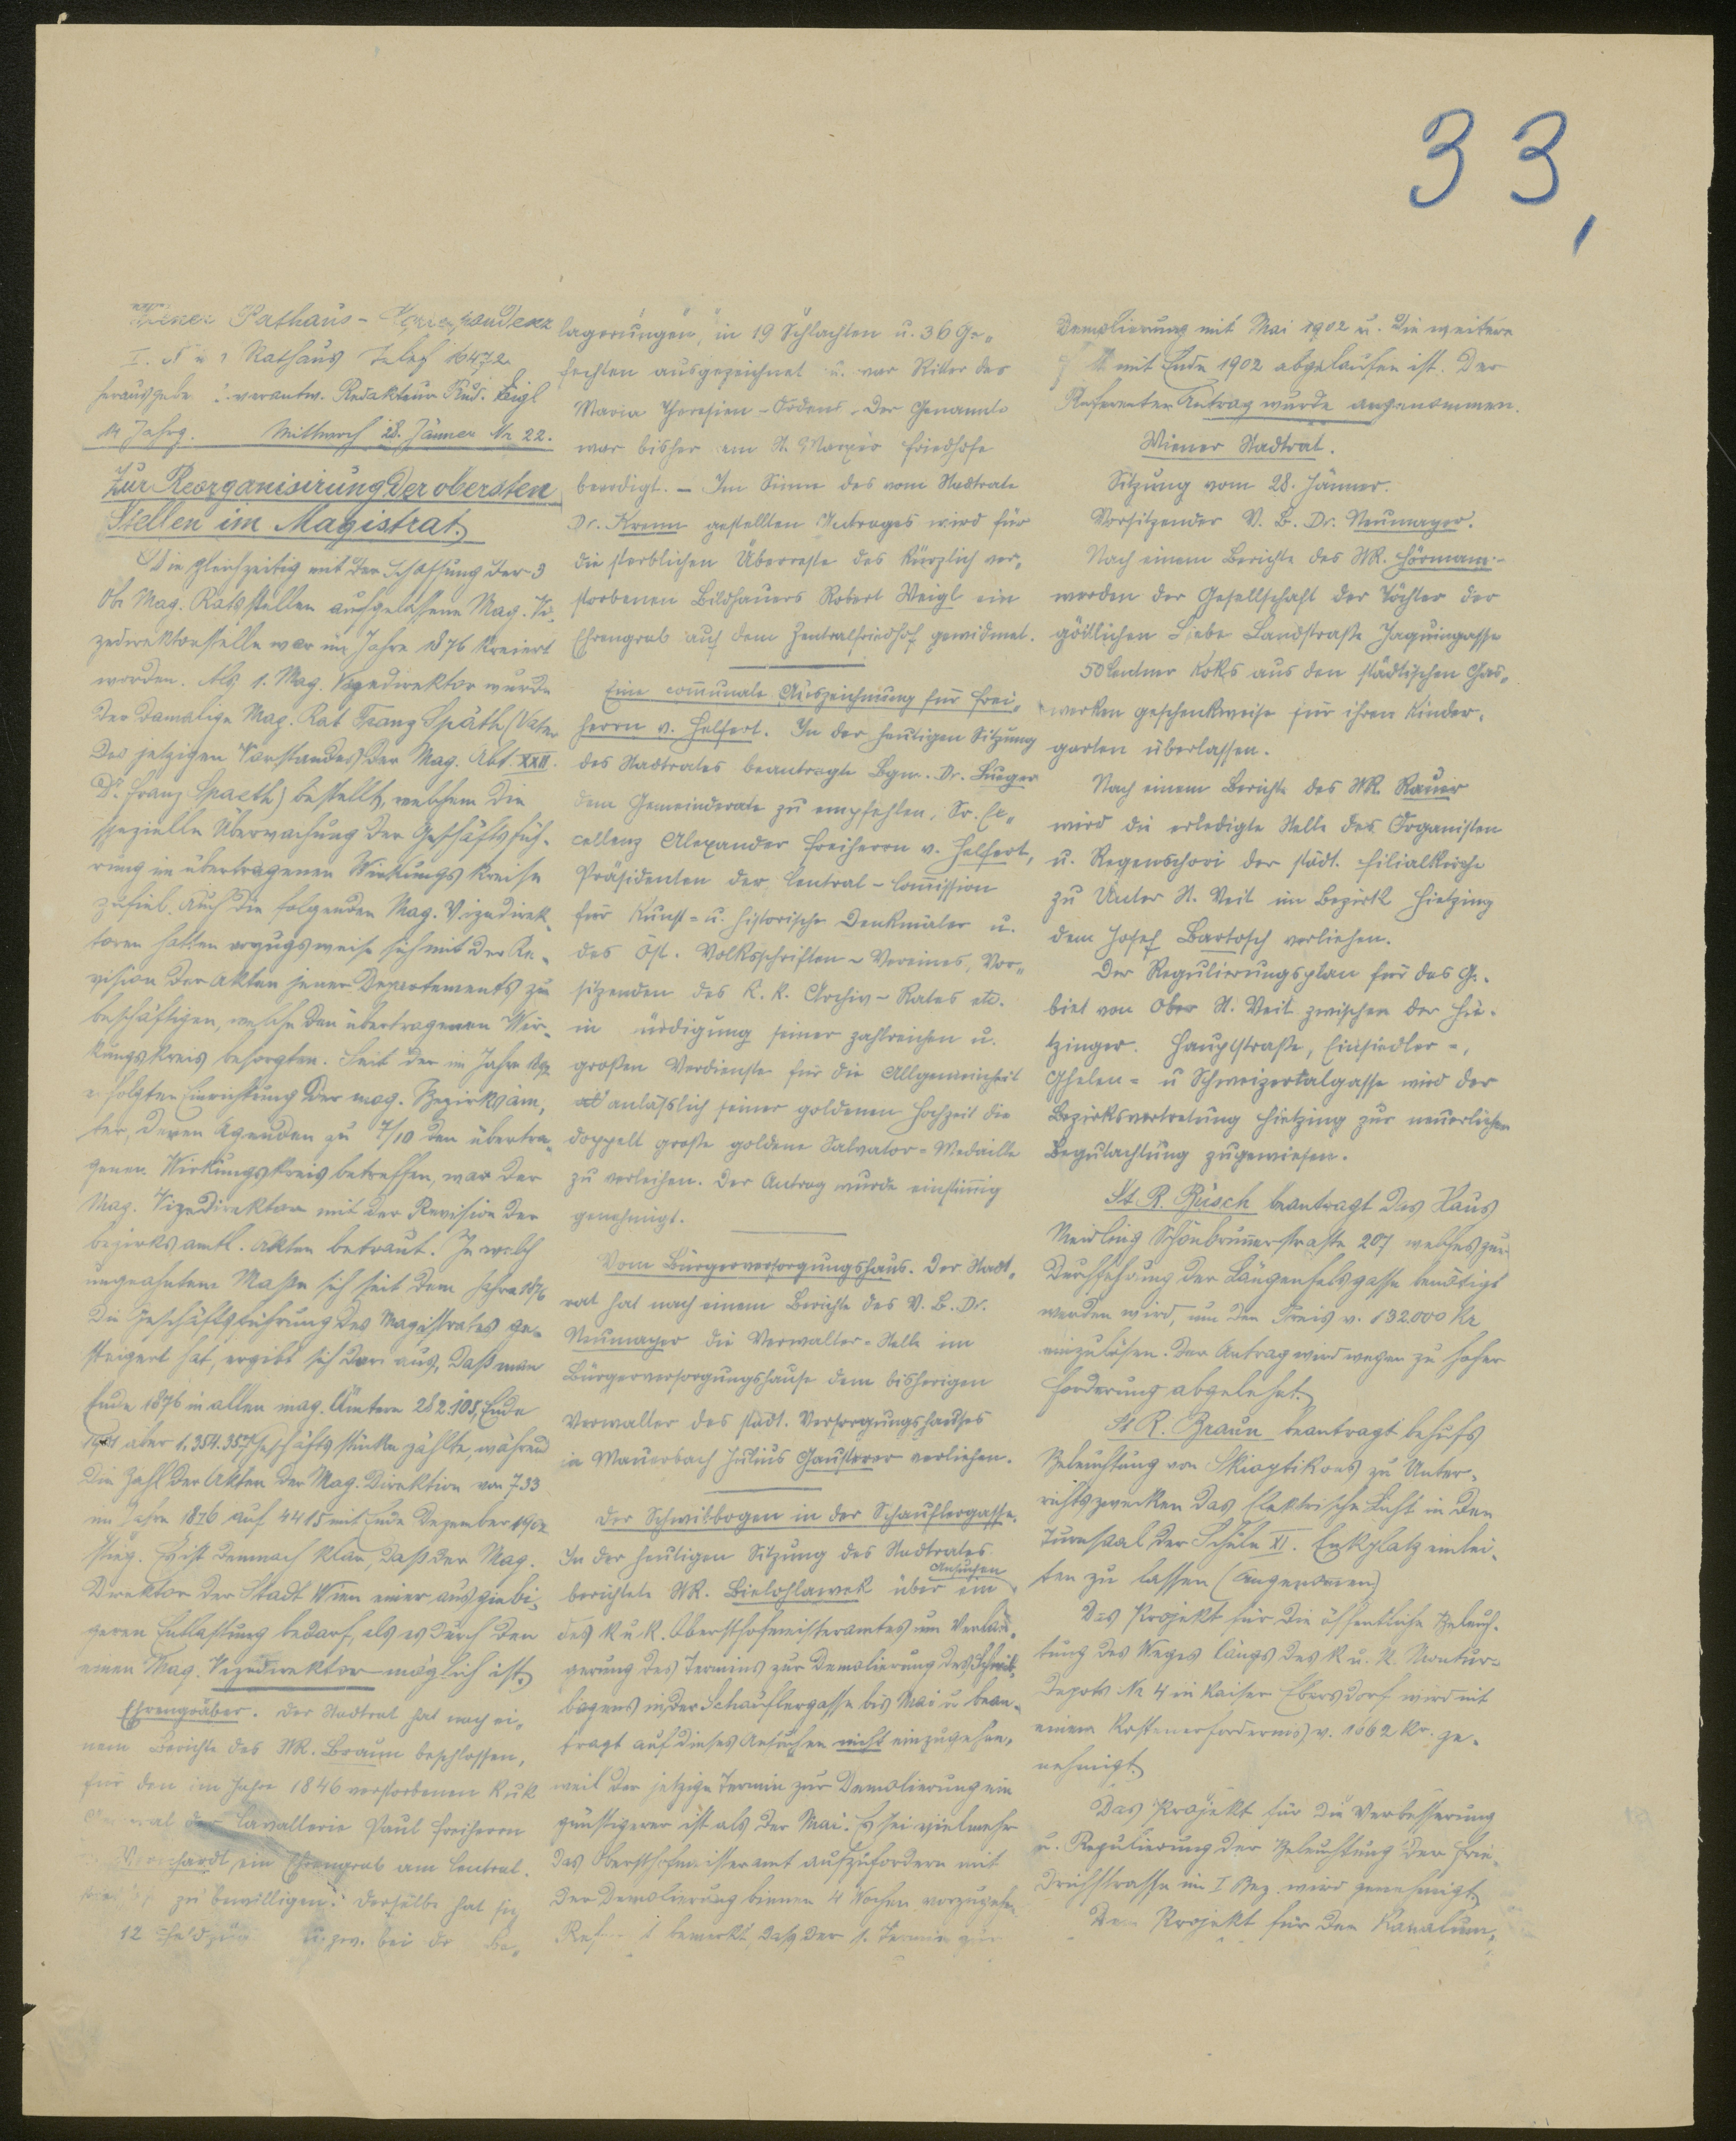 33,
Wiener Rathaus-Korrespondenz
I. Neues Rathaus Telef 16472
Herausgeber u. verantw. Redakteur Rud. Eigl
14 Jahrg. Mittwoch 28. Jänner Nr 22.
Zur Reorganisirung der obersten
Stellen im Magistrat.
Die gleichzeitig mit der Schaffung der 3
Ob. Mag. Ratsstellen aufgelassene Mag. Vi-
zedirektorstelle war im Jahre 1876 kreiert
worden. Als 1. Mag. Vizedirektor wurde
der damalige Mag. Rat Franz Späth (Vater
des jetzigen Vorstandes der Mag. Abt. XXII.
Dr. Franz Spaeth) bestellt, welchem die
spezielle Überwachung der Geschäftsfüh-
rung im übertragenen Wirkungskreise
zufiel. Auch die folgenden Mag. Vizedirek-
toren hatten vorzugsweise sich mit der Re-
vision der Akten jener Departements zu
beschäftigen, welche den übertragenen Wir-
kungskreis besorgten. Seit der im Jahre
erfolgten Einrichtung der mag. Bezirksäm-
ter, deren Agenden zu 7/10 den übertra-
genen Wirkungskreis betreffen, war der
Mag. Vizedirektor mit der Revision der
bezirksamtl. Akten betraut. In welch
ungeahntem Maße sich seit dem Jahre 1876
die Geschäftsführung des Magistrates ge-
steigert hat, ergibt sich daraus, daß man
Ende 1876 in allen mag. Ämtern 282.105, Ende
1901 aber 1,354.357 Geschäftsstücke zählte, während
die Zahl der Akten der Mag. Direktion von 733
im Jahre 1876 auf 4415 mit Ende Dezember 1902
stieg. Es ist demnach klar, daß der Mag.
Direktor der Stadt Wien einer ausgiebi-
geren Entlastung bedarf, als es durch den
einen Mag. Vizedirektor möglich ist.
Ehrengräber. Der Stadtrat hat nach ei-
nem Berichte des StR. Braun beschlossen,
für den im Jahre 1846 verstorbenen k u k
General der Cavallerie Paul Freiherrn
ein Ehrengrab am Central-
zu bewilligen. Derselbe hat sich
12 Feldzügen u. zw. bei Be-
lagerungen, in 19 Schlachten u. 36 Ge-
fechten ausgezeichnet u. war Ritter des
Maria Theresien-Ordens. Der Genannte
war bisher am St. Marxer Friedhofe
beerdigt. – Im Sinne des vom Stadtrate
Dr. Krenn gestellten Antrages wird für
die sterblichen Überreste des kürzlich ver-
storbenen Bildhauers Robert Weigl ein
Ehrengrab auf dem Zentralfriedhof gewidmet.
Eine communale Auszeichnung für Frei-
herrn v. Helfert. In der heutigen Sitzung
des Stadtrates beantragte Bgm. Dr. Lueger
dem Gemeinderate zu empfehlen, Sr. Ex-
cellenz Alexander Freiherrn v. Helfert,
Präsidenten der Central-Commission
für Kunst- u. historische Denkmäler u.
des Öst. Volksschriften-Vereines, Vor-
sitzenden des k. k. Archiv-Rates etc.
in Würdigung seiner zahlreichen u.
großen Verdienste für die Allgemeinheit
anläßlich seiner goldenen Hochzeit die
doppelt große goldene Salvator-Medaille
zu verleihen. Der Antrag wurde einstimmig
genehmigt.
Vom Bürgerversorgungshaus. Der Stadt-
rat hat nach einem Berichte des V. B. Dr.
Neumayer die Verwalter-Stelle im
Bürgerversorgungshause dem bisherigen
Verwalter des städt. Versorgungshauses
in Mauerbach Julius Gausterer verliehen.
Der Schwibbogen in der Schauflergasse.
In der heutigen Sitzung des Stadtrates
berichtete StR. Bielohlawek über ein Ansuchen
des k u k. Obersthofmeisteramtes um Verlän-
gerung des Termins zur Demolierung des Schwib-
bogens in der Schauflergasse bis Mai u. bean-
tragt auf dieses Ansuchen nicht einzugehen,
weil der jetzige Termin zur Demolierung ein
günstigerer ist als der Mai. Es sei vielmehr
das Obersthofmeisteramt aufzufordern mit
der Demolierung binnen 4 Wochen vorzugehen.
Referent bemerkt, daß der 1. Termin zur
Demolierung mit Mai 1902 u. die weitere
mit Ende 1902 abgelaufen ist. Der
Referenten Antrag wurde angenommen.
Wiener Stadtrat.
Sitzung vom 28. Jänner.
Vorsitzender V. B. Dr. Neumayer.
Nach einem Berichte des StR. Hörmann
werden der Gesellschaft der Töchter der
göttlichen Liebe Landstraße Jaquingasse
50 Centner Koks aus den städtischen Gas-
werken geschenkweise für ihren Kinder-
garten überlassen.
Nach einem Berichte des StR. Rauer
wird die erledigte Stelle des Organisten
u. Regenschori der städt. Filialkirche
zu Unter St. Veit im Bezirk Hietzing
dem Josef Bartosch verliehen.
Der Regulierungsplan für das Ge-
biet von Ober St. Veit zwischen der Hie-
tzinger. Hauptstraße, Einsiedler-,
Ghelen- u Schweizertalgasse wird der
Bezirksvertretung Hietzing zur neuerlichen
Begutachtung zugewiesen.
St. R. Büsch beantragt das Haus
Meidling Schönbrunnerstraße 207 welches zur
Durchführung der Längenfeldgasse benötigt
werden wird, um den Preis v. 132.000 Kr
einzulösen. Der Antrag wird wegen zu hoher
Forderung abgelehnt.
St. R. Braun beantragt behufs
Beleuchtung von Skioptikons zu Unter-
richtszwecken das elektrische Licht in den
Turnsaal der Schule XI. Enkplatz einlei-
ten zu lassen (Angenommen)
Das Projekt für die öffentliche Beleuch-
tung des Weges längs des k u. k. Montur-
Depots Nr 4 in Kaiser Ebersdorf wird mit
einem Kostenerfordernis v. 1662 Kr. ge-
nehmigt.
Das Projekt für die Verbesserung
u. Regulierung der Beleuchtung der Frie-
drichstrasse im I Bez. wird genehmigt.
Projekt für den Kanalum-